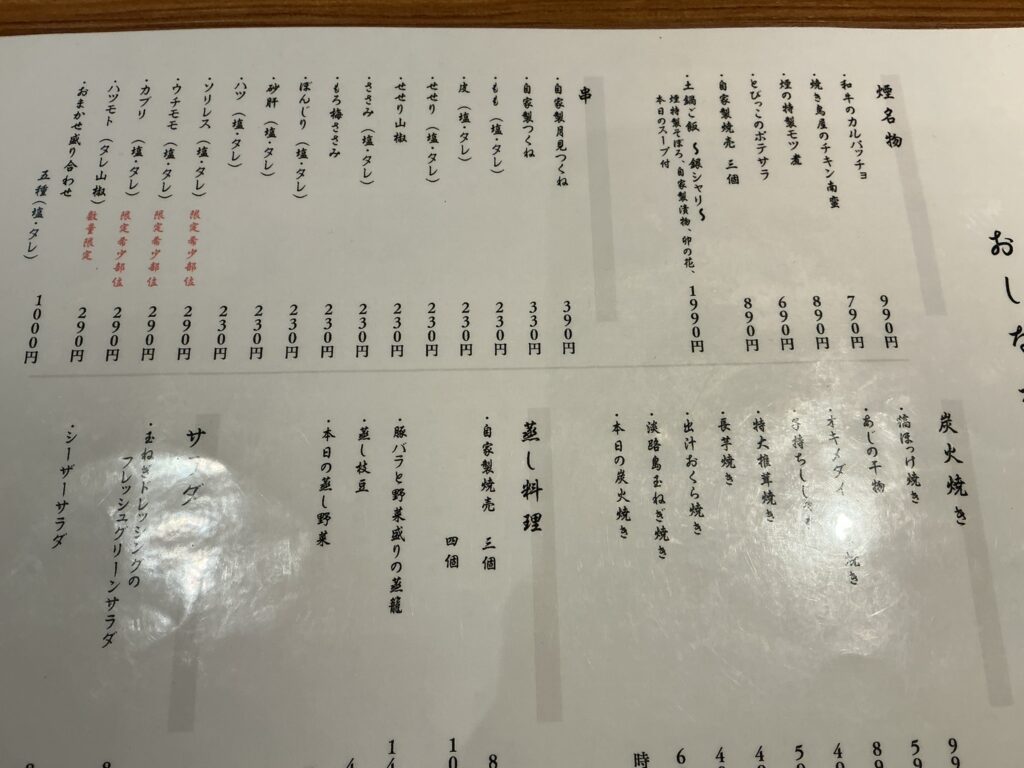 おしな
煙名物
・和牛のカルパッチョ 990円
・焼き鳥屋のチキン南蛮 790円
・煙の特製モツ煮 890円
・とびっこのポテサラ 690円
・自家製焼売 三個 890円
・土鍋ご飯 〜銀シャリ〜 1990円
煙特製そぼろ、自家製漬物、卯の花、
本日のスープ付
串
・自家製月見つくね 390円
・自家製つくね 330円
・もも（塩・タレ） 230円
・皮（塩・タレ） 230円
・せせり（塩・タレ） 230円
・せせり山椒 230円
・ささみ（塩・タレ） 230円
・もろ梅ささみ 230円
・ぼんじり（塩・タレ） 230円
・砂肝（塩・タレ） 230円
・ハツ（塩・タレ） 230円
・ソリレス（塩・タレ）限定希少部位 290円
・ウチモモ（塩・タレ）限定希少部位 290円
・カブリ（塩・タレ）限定希少部位 290円
・ハツモト（タレ山椒）数量限定 290円
・おまかせ盛り合わせ
五種（塩・タレ） 1000円
炭火焼き
・縞ほっけ焼き
・あじの干物
・オキメダイ 焼き
・子持ちしし
・特大椎茸焼き
・長芋焼き
・出汁おくら焼き
・淡路島玉ねぎ焼き
・本日の炭火焼き
蒸し料理
・自家製焼売 三個
四個
・豚バラと野菜盛りの蒸籠
・蒸し枝豆
・本日の蒸し野菜
サラダ
・玉ねぎドレッシングの
フレッシュグリーンサラダ
・シーザーサラダ